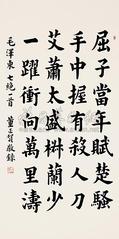 屈子當年賦楚騷
手中握有殺人刀
艾蕭太盛椒蘭少
一躍衝向萬里濤
毛澤東七絕一首 董正賀敬錄